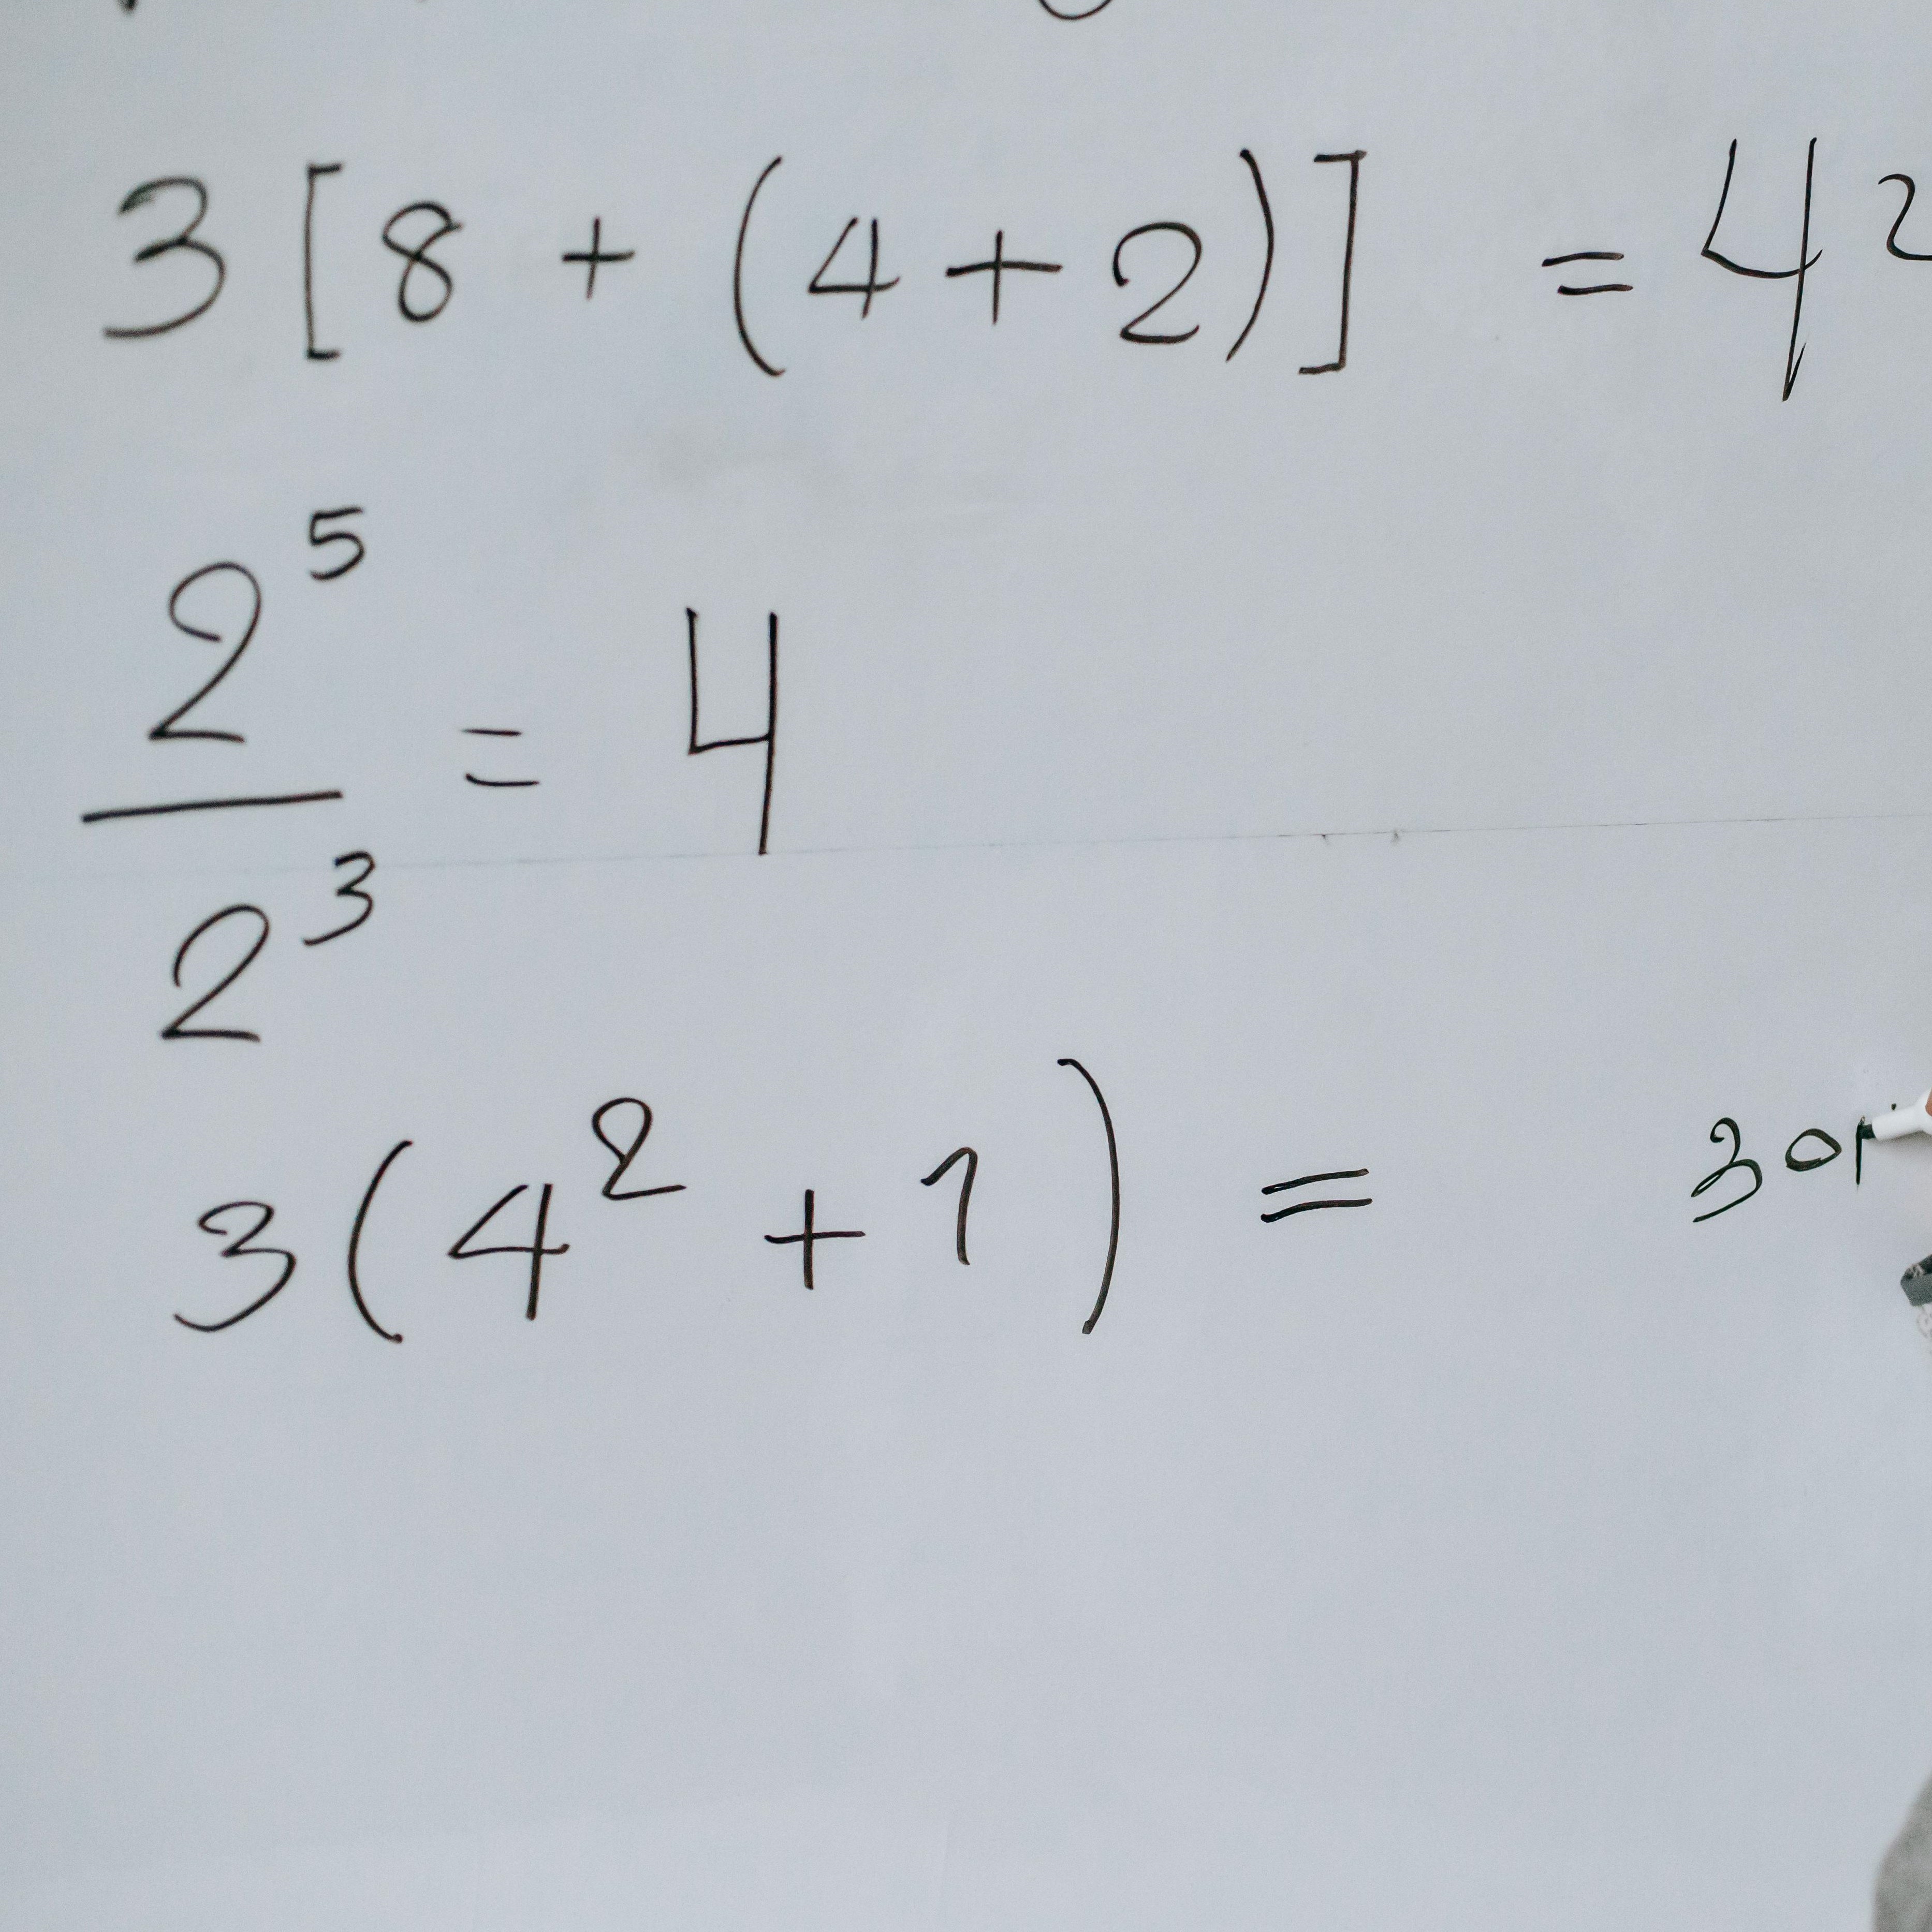 3 [8 + (4 + 2)] = 42
2⁵/2³ = 4
3 (4² + 1) = 30